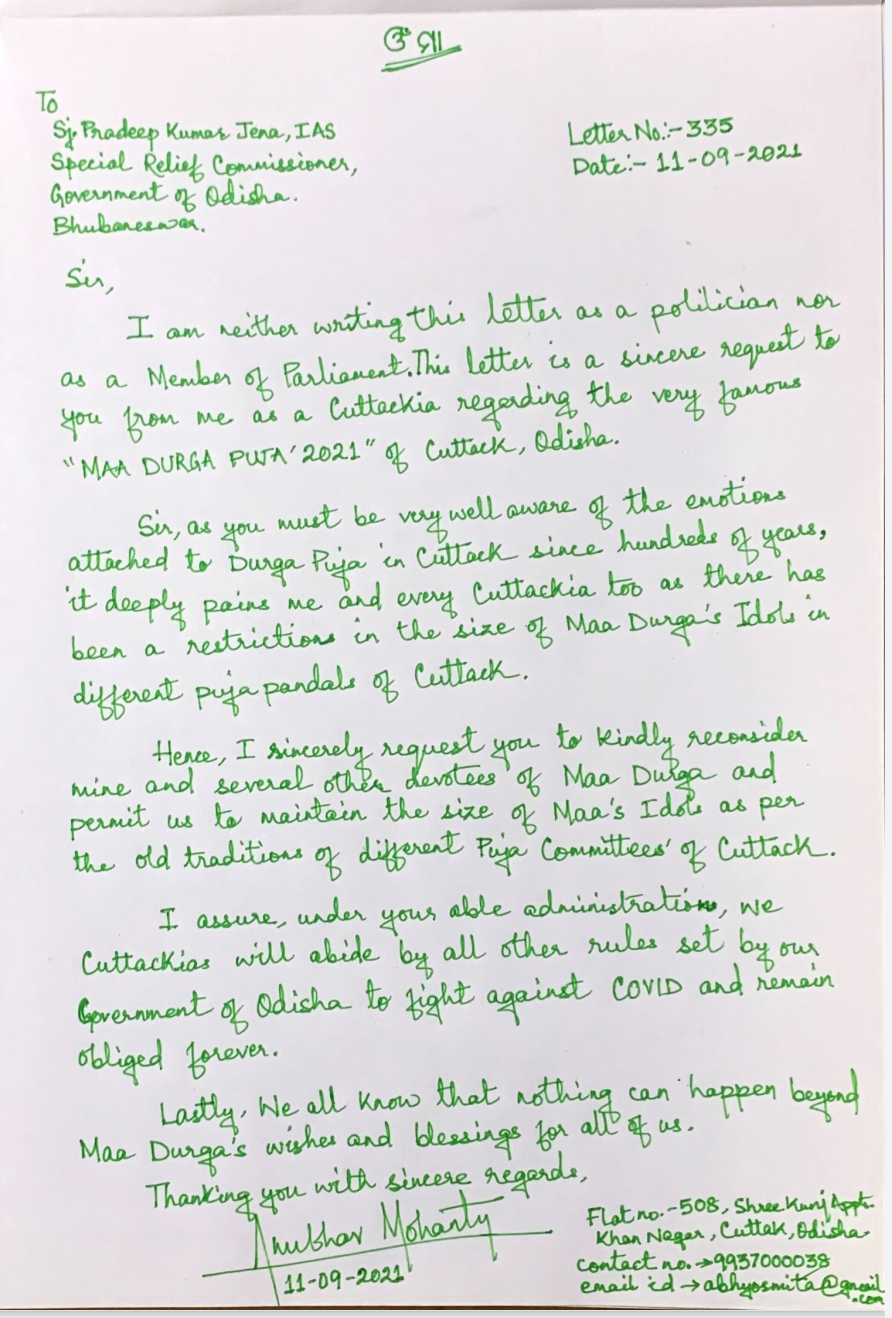 ଓଁ ମା
To
Sj. Pradeep Kumar Jena, IAS
Special Relief Commissioner,
Government of Odisha.
Bhubaneswar.
Letter No:- 335
Date:- 11-09-2021
Sir,
I am neither writing this letter as a polilician nor
as a Member of Parliament. This letter is a sincere request to
you from me as a Cuttackia regarding the very famous
"MAA DURGA PUJA'2021" of Cuttack, Odisha.
Sir, as you must be very well aware of the emotions
attached to Durga Puja in Cuttack since hundreds of years,
it deeply pains me and every Cuttackia too as there has
been a restrictions in the size of Maa Durga's Idols in
different puja pandals of Cuttack.
Hence, I sincerely request you to kindly reconsider
mine and several other devotees of Maa Durga and
permit us to maintain the size of Maa's Idols as per
the old traditions of different Puja Committees' of Cuttack.
I assure, under your able administration, we
Cuttackias will abide by all other rules set by our
Government of Odisha to fight against COVID and remain
obliged forever.
Lastly, We all know that nothing can happen beyond
Maa Durga's wishes and blessings for all of us.
Thanking you with sincere regards,
Anubhav Mohanty
11-09-2021
Flat no.-508, Shree Kunj Appt.
Khan Nagar, Cuttak, Odisha
contact no. → 9937000038
email id → abhyosmita@gmail
.com